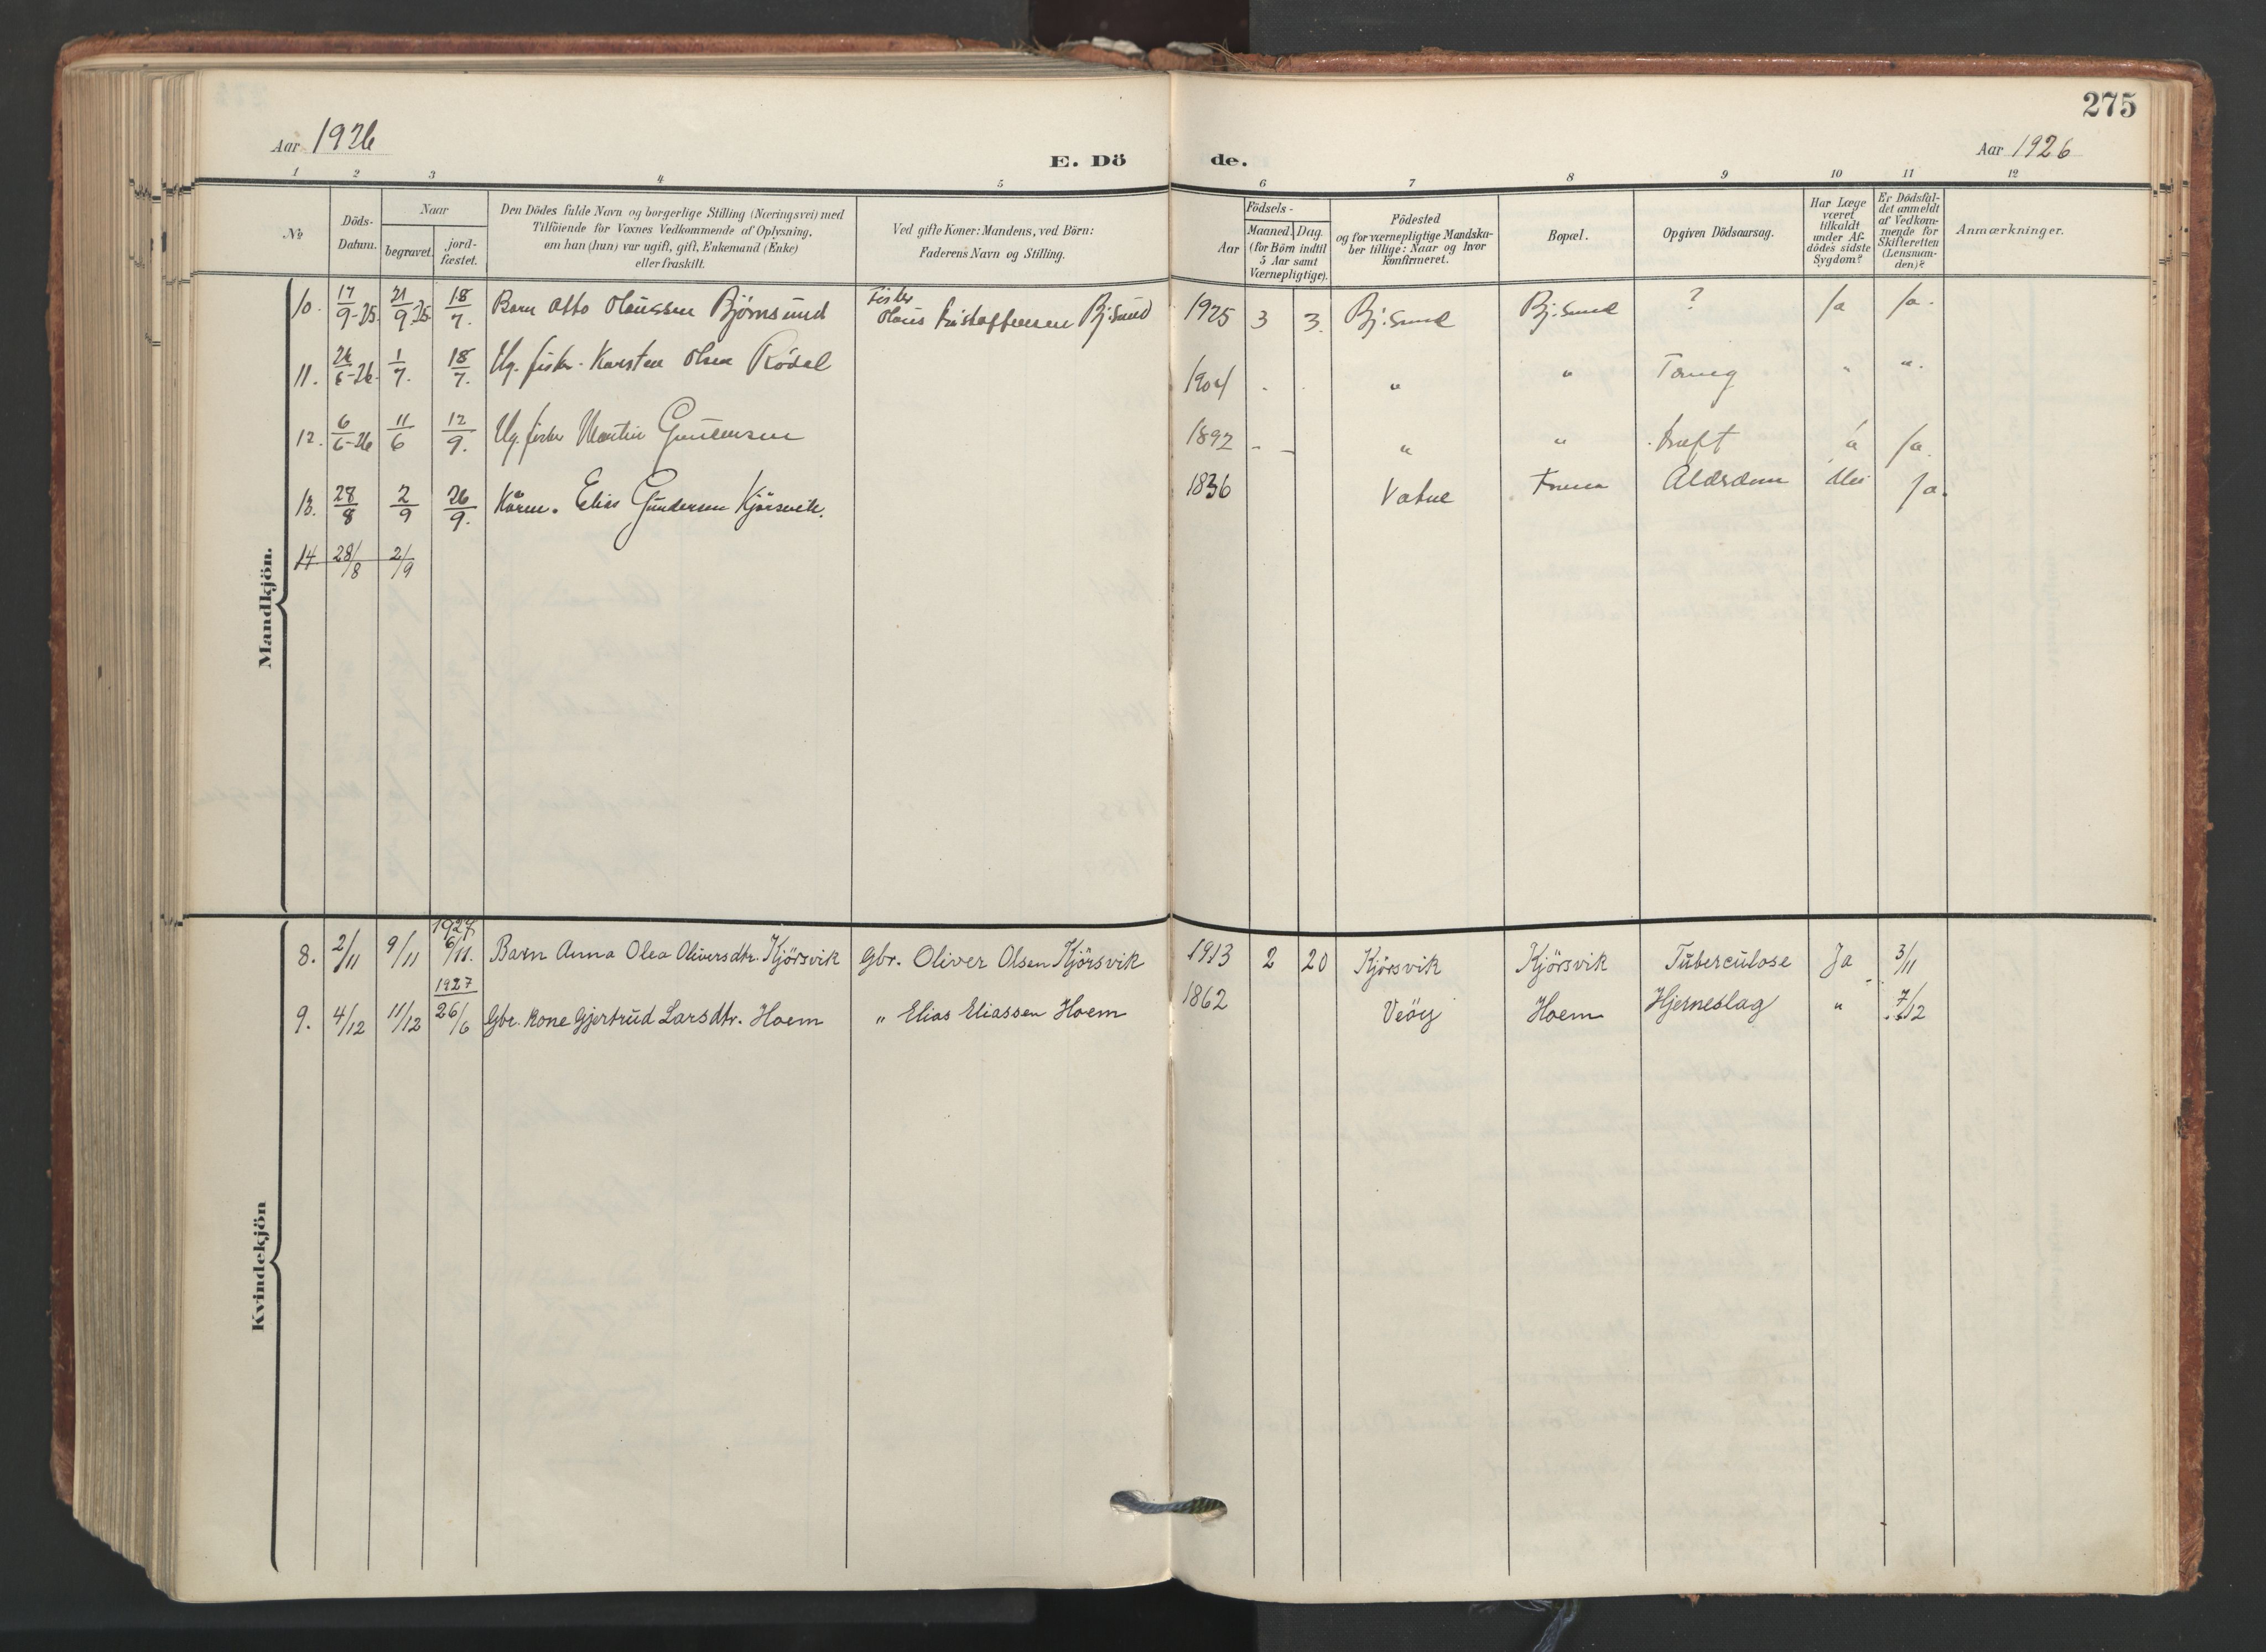 275
Aar 1926
E. Dö de.
Aar 1926
1 2 3 4 5 6 7 8 9 10 11 12
No
Döds-Datum.
Naar
begravet.
jord-fæstet.
Den Dödes fulde Navn og borgerlige Stilling (Næringsvei) med
Tilföiende for Voxnes Vedkommende af Oplysning,
om han (hun) var ugift, gift, Enkemand (Enke)
eller fraskilt.
Ved gifte Koner: Mandens, ved Börn:
Faderens Navn og Stilling.
Födsels-
Aar
Maaned. Dag.
(for Börn indtil
5 Aar samt
Værnepligtige).
Födested
og for værnepligtige Mandska-
ber tillige: Naar og hvor
konfirmeret.
Bopæl.
Opgiven Dödsaarsag.
Har Læge
været
tilkaldt
under Af-
dödes sidste
Sygdom?
Er Dödsfal-
det anmeldt
af Vedkom-
mende for
Skifteretten
(Lensman-
den)?
Anmærkninger.
Mandkjön.
10. 17/9-25. 21/9-25 18/7. Barn Otto Olaussen Björnsund Fisker Olaus Kristoffersen Bj:sund 1925 3 3. Bj:sund Bj:sund ? Ja Ja.
11. 26/6-26. 1/7. 18/7. Ug. fisker Karsten Olsen Rödal 1904 - . " " " ".
12. 6/6-26 11/6 12/9. Ug. fisker Martin Gundersen 1892 - - " " kræft Ja Ja.
13. 28/8 2/9 26/9. Kårm. Elias Gundersen Kjörsvik. 1836 Vatne Alderdom Nei Ja.
14 28/8 2/9
Kvindekjön
8. 2/11 9/11 1927 6/11. Barn Anna Olea Oliversdtr. Kjörsvik Gbr. Oliver Olsen Kjörsvik 1913 2 20 Kjörsvik Kjörsvik Tuberculose Ja 3/11
9. 4/12 11/12 1927 26/6 Gbr. kone Gjertrud Larsdtr. Hoem " Elias Eliassen Hoem 1862 Veöy Hoem Hjerneslag " 7/12